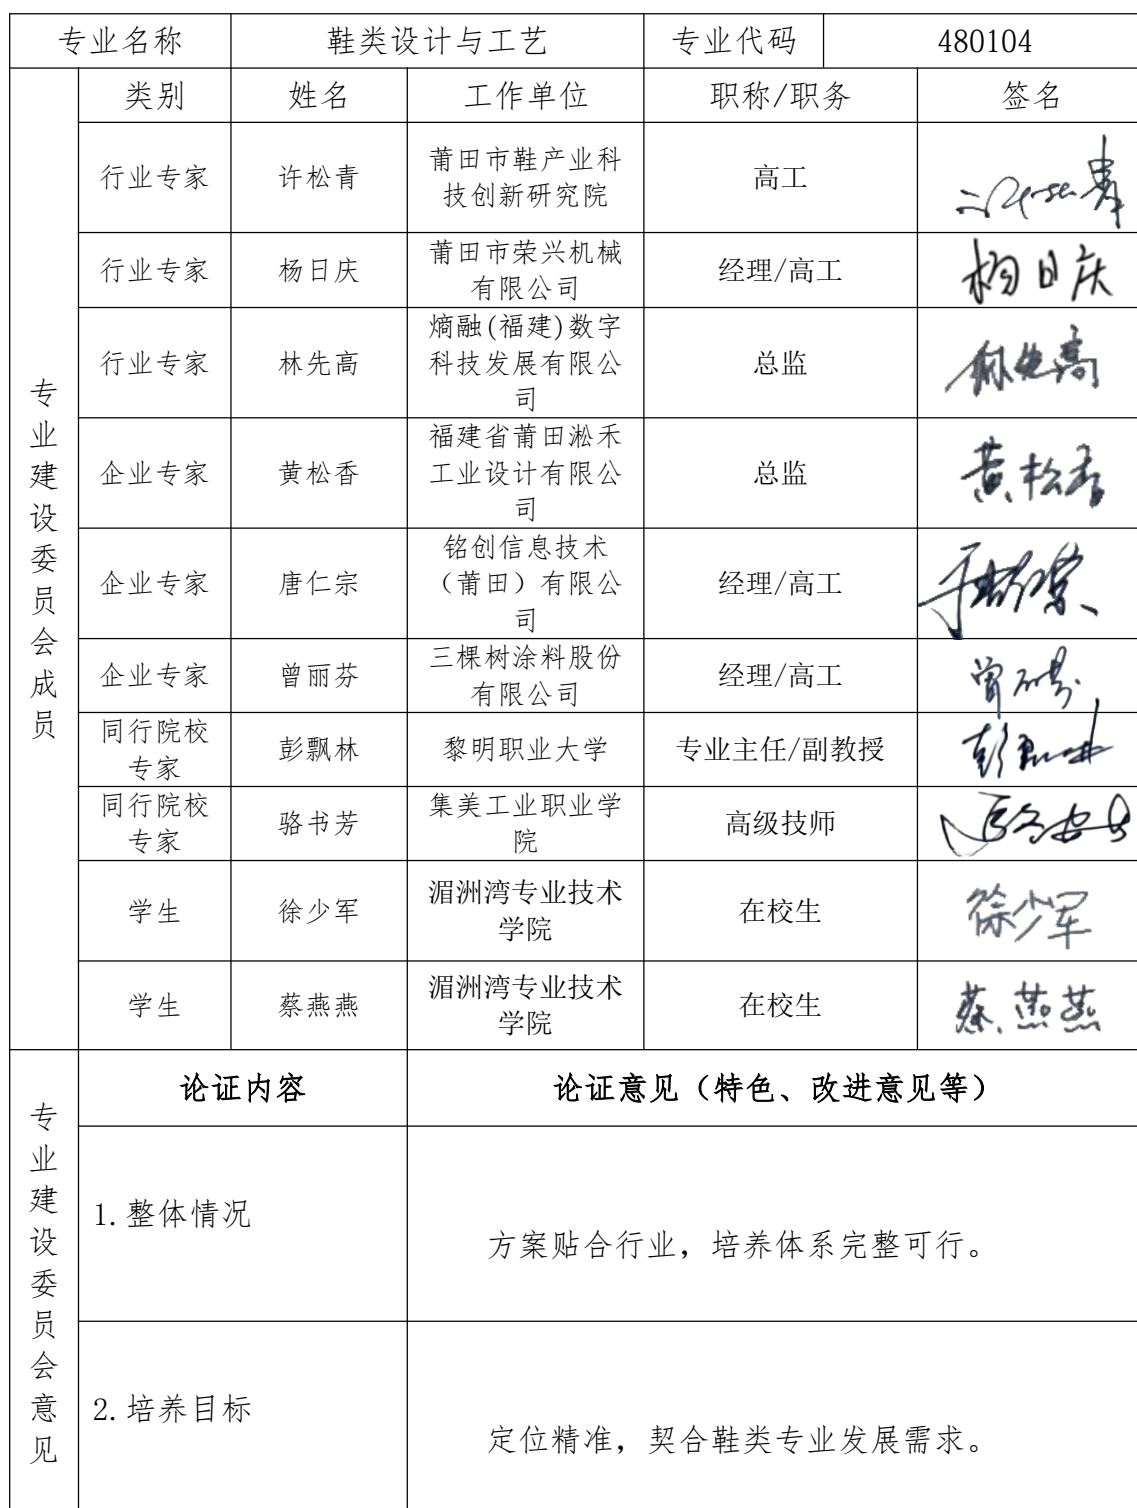 专业名称 鞋类设计与工艺 专业代码 480104
专业建设委员会成员
类别 姓名 工作单位 职称/职务 签名
行业专家 许松青 莆田市鞋产业科
技创新研究院 高工
行业专家 杨日庆 莆田市荣兴机械
有限公司 经理/高工 杨日庆
行业专家 林先高 熵融(福建)数字
科技发展有限公
司 总监 林先高
企业专家 黄松香 福建省莆田淞禾
工业设计有限公
司 总监 黄松香
企业专家 唐仁宗 铭创信息技术
（莆田）有限公
司 经理/高工
企业专家 曾丽芬 三棵树涂料股份
有限公司 经理/高工 曾丽芬
同行院校
专家 彭飘林 黎明职业大学 专业主任/副教授 彭飘林
同行院校
专家 骆书芳 集美工业职业学
院 高级技师
学生 徐少军 湄洲湾专业技术
学院 在校生 徐少军
学生 蔡燕燕 湄洲湾专业技术
学院 在校生 蔡燕燕
专业建设委员会意见
论证内容 论证意见（特色、改进意见等）
1.整体情况 方案贴合行业，培养体系完整可行。
2.培养目标 定位精准，契合鞋类专业发展需求。